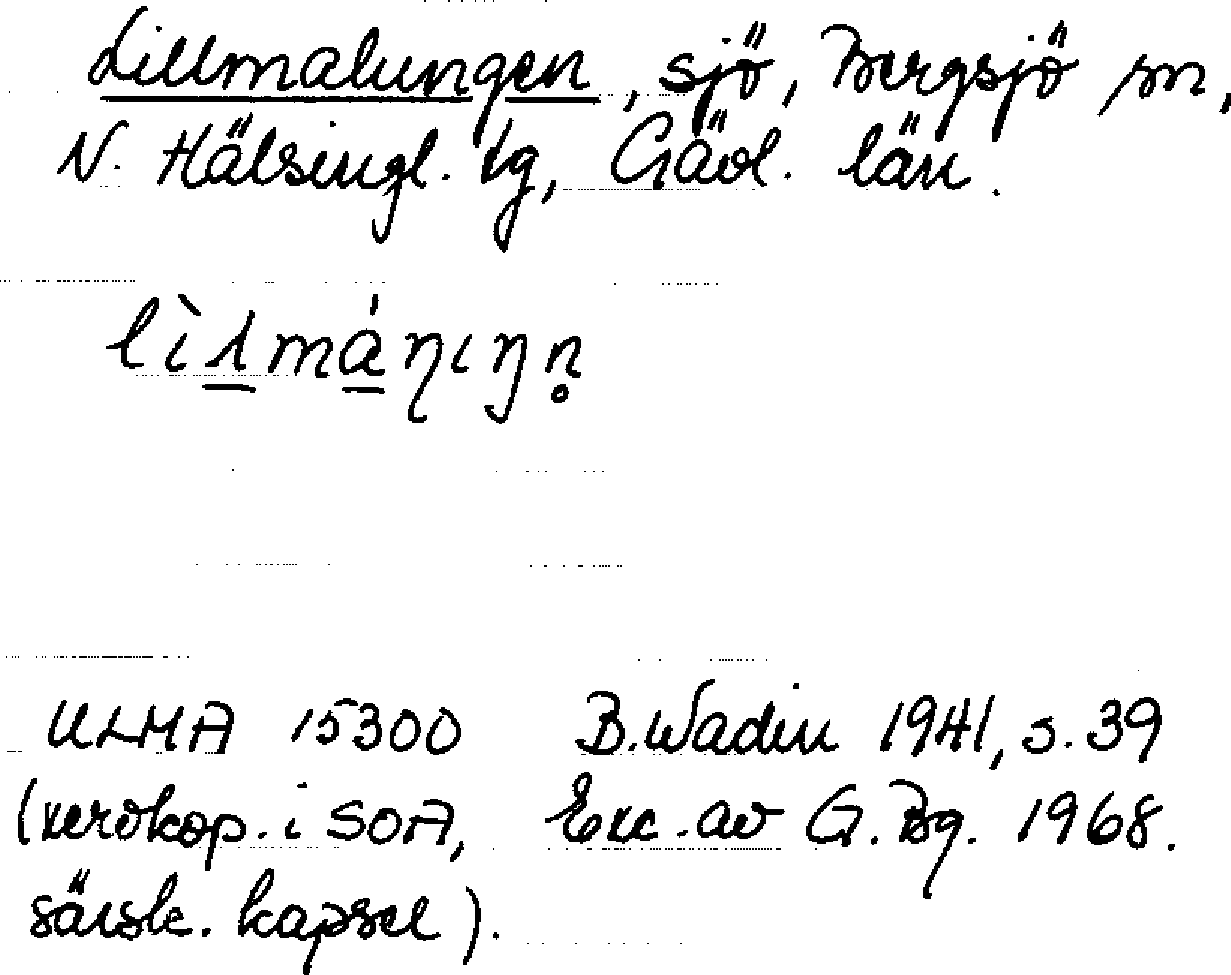 Lillmalungen, sjö, Bergsjö sn,
N. Hälsingl. tg, Gävl. län.
ULMA 15300 B. Wadin 1941, s. 39
(xerokop. i SOA, Exc. av G. Bg. 1968.
särsk. kapsel).